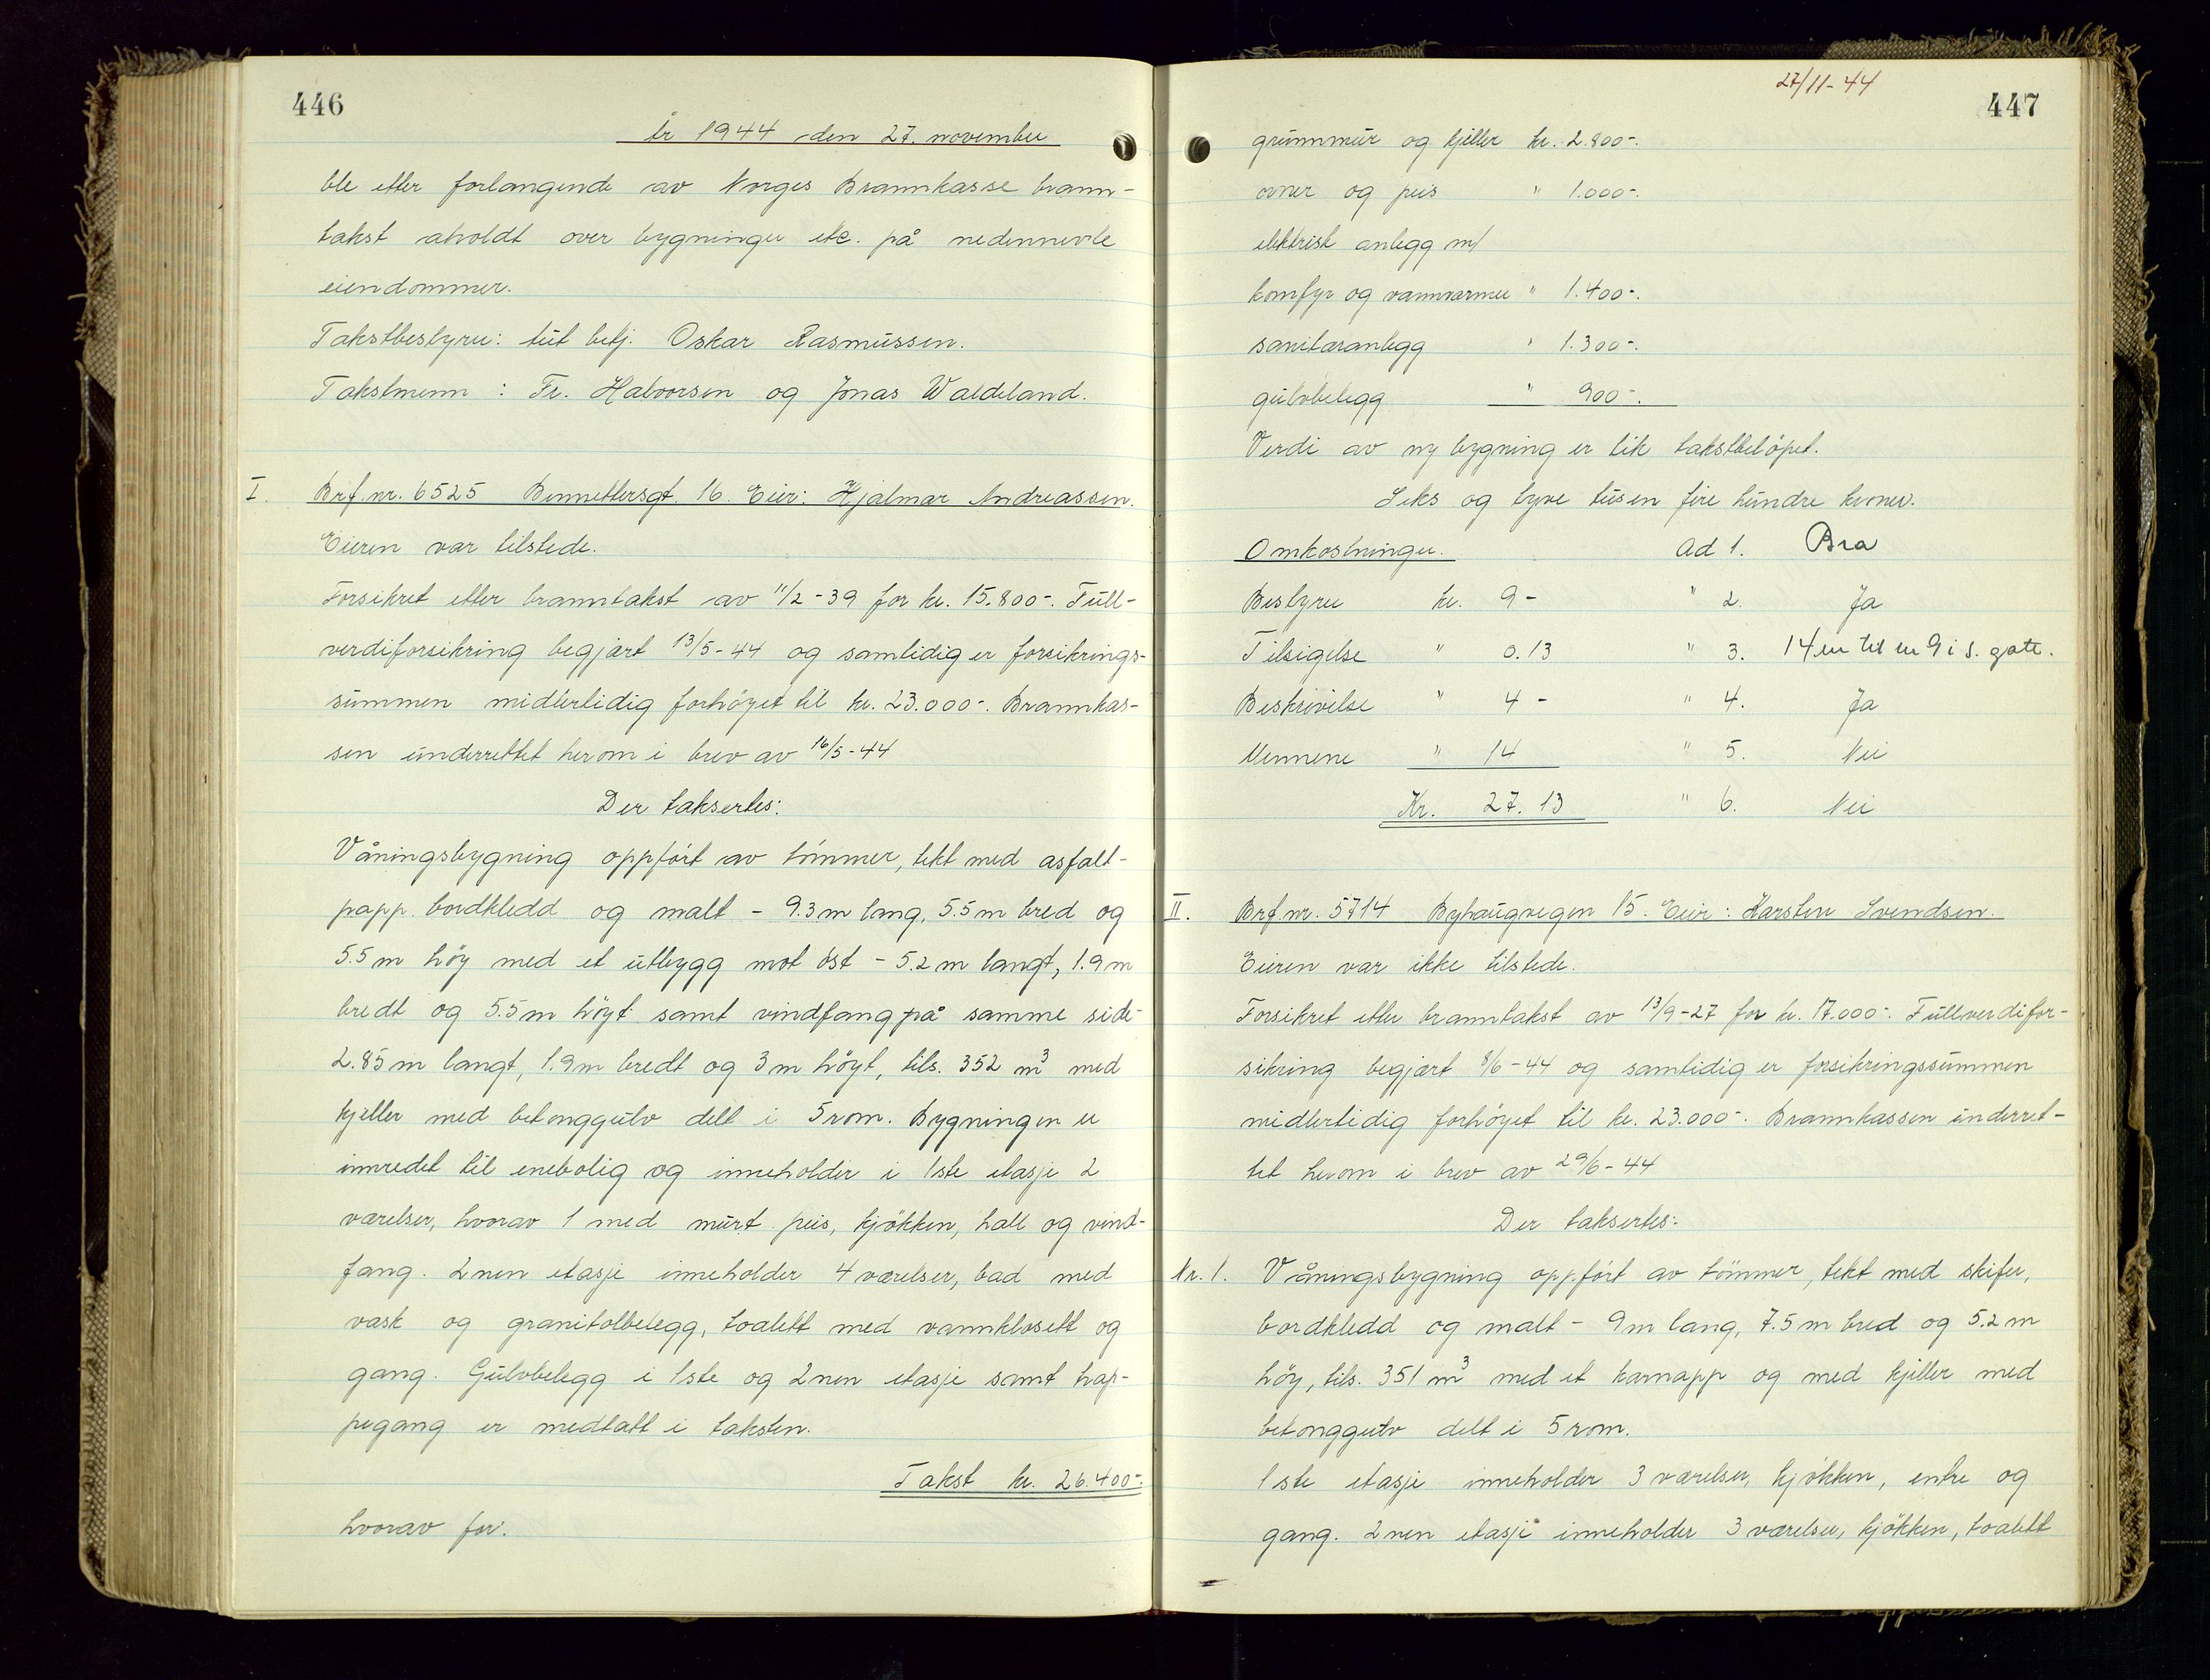 446
År 1944 den 27. november
ble etter forlangende av Norges Brannkasse brann-
takst avholdt over bygninger etc. på nedennevnte
eiendommer.
Takstbestyrer: tit betj. Oskar Rasmussen.
Takstmenn : Fr. Halvorsen og Jonas Waldeland.
I. Brf.nr. 6525 Bennettersgt. 16. Eier: Hjalmar Andreassen.
Eieren var tilstede.
Forsikret etter branntakst av 11/2-39 for kr. 15.800-. Full-
verdiforsikring begjært 13/5-44 og samtidig er forsikrings-
summen midlertidig forhöyet til kr. 23.000-. Brannkas-
sen underrettet herom i brev av 16/5-44
Der taksertes:
Våningsbygning oppfört av tömmer, tekt med asfalt-
papp bordkledd og malt - 9.3 m lang, 5.5 m bred og
5.5 m höy med et utbygg mot öst - 5.2 m langt, 1.9 m
bredt og 5.5 m höyt samt vindfang på samme side-
2.85 m langt, 1.9 m bredt og 3 m höyt, tils. 352 m3 med
kjeller med betonggulv delt i 5 rom. Bygningen er
innredet til enebolig og inneholder i 1ste etasje 2
værelser, hvorav 1 med murt peis, kjökken, hall og vind-
fang. 2nen etasje inneholder 4 værelser, bad med
vask og granitolbelegg, toalett med vannklosett og
gang. Gulvbelegg i 1ste og 2nen etasje samt trap-
pegang er medtatt i taksten.
Takst kr. 26.400-.
hvorav for:
27/11-44
447
grunnmur og kjeller kr. 2.800-.
ovner og peis " 1.000-.
elektrisk anlegg m/
komfyr og vannvarmer " 1.400-.
sanitæranlegg " 1.300-.
gulvbelegg " 900-.
Verdi av ny bygning er lik takstbelöpet.
Seks og tyve tusen fire hundre kroner.
Omkostninger. Ad 1. Bra
Bestyrer kr. 9- " 2. Ja
Tilsigelse " 0.13 " 3. 14 m til nr 9 i s. gate.
Beskrivelse " 4 - " 4. Ja
Mennene " 14 " 5. Nei
Kr. 27.13 " 6. Nei
II. Brf.nr. 5714 Byhaugvegen 15. Eier: Karsten Svendsen.
Eieren var ikke tilstede.
Forsikret etter branntakst av 13/9-27 for kr. 17.000-. Fullverdifor-
sikring begjært 8/6-44 og samtidig er forsikringssummen
midlertidig forhöyet til kr. 23.000-. Brannkassen underret-
tet herom i brev av 29/6-44
Der taksertes:
Nr. 1. Våningsbygning oppfört av tömmer, tekt med skifer,
bordkledd og malt - 9 m lang, 7.5 m bred og 5.2 m
höy, tils. 351 m3 med et karnapp og med kjeller med
betonggulv delt i 5 rom.
1ste etasje inneholder 3 værelser, kjökken, entre og
gang. 2nen etasje inneholder 3 værelser, kjökken, toalett